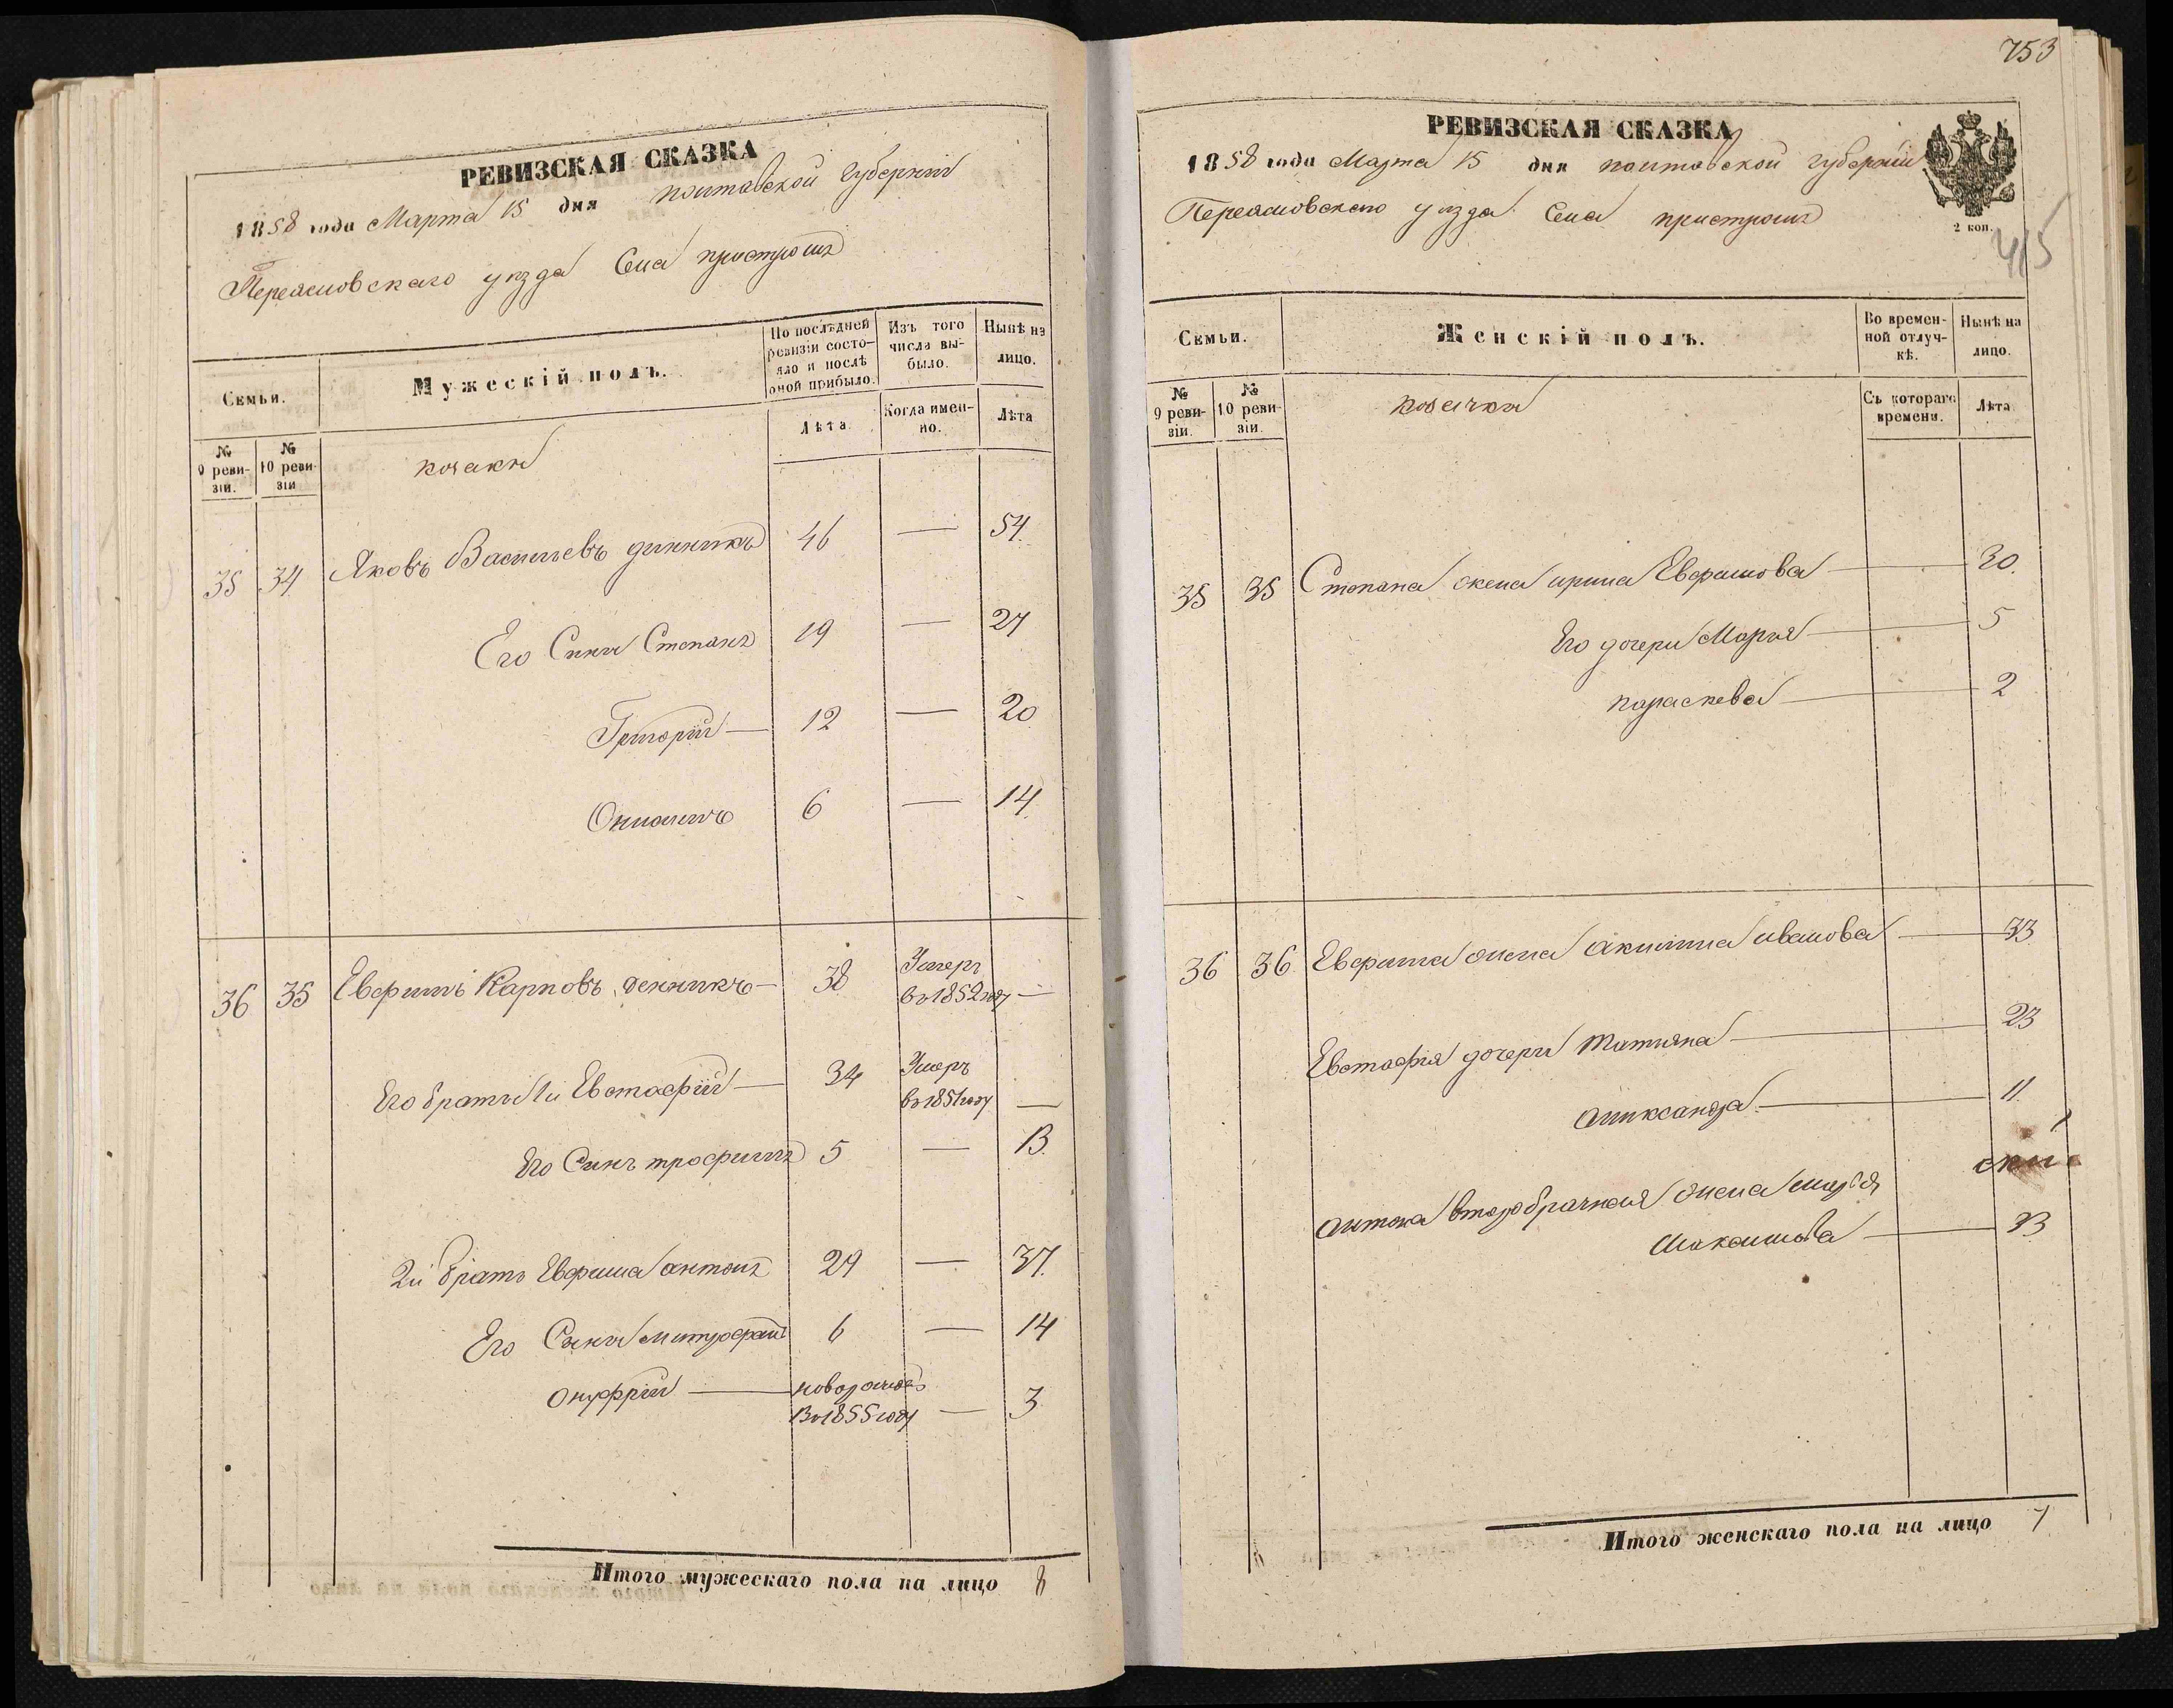 РЕВИЗСКАЯ СКАЗКА
1858 года Марта 15 дня полтавской губернии
Переяславскаго уезда Села пристромъ
Семьи.
Мужескій полъ.
По послѣдней ревизіи состо-
яло и послѣ
оной прибыло.
Изъ того
числа вы-
было.
Нынѣ на
лицо.
№
9 реви-
зіи.
№
10 реви-
зіи
козаки
Лѣта.
Когда имен-
но.
Лѣта
35 34 Яковъ Васильевъ динникъ 46 — 54
Его Сыны Степанъ 19 — 27
Григорій — 12 — 20
6 — 14
36 35 Евфимъ Карповъ денникъ — 38 Умеръ
въ 1852 году —
Его братья 1й Евстафій — 34 Умеръ
въ 1851 году —
Его Сынъ трофимъ 5 — 13
2й братъ Евфима антонъ 29 — 37
Его Сыны митрофанъ 6 — 14
онуфрій — новорожден
Въ 1855 году — 3
Итого мужескаго пола на лицо 8
753
РЕВИЗСКАЯ СКАЗКА
1858 года Марта 15 дня полтавской губернии
Переяславскаго уезда Села пристромъ
2 коп.
415
Семьи.
Женскій полъ.
Во времен-
ной отлуч-
кѣ.
Нынѣ на
лицо.
№
9 реви-
зіи.
№
10 реви-
зіи.
козачки
Съ котораго
времени.
Лѣта
35 35 Степана жена ирина Евфимова — 30
Его дочери Марья — 5
параскева — 2
36 36 Евфима жена акилина иванова — 33
Евстафія дочери татьяна — 23
александра — 11
антона второбрачная жена марья
Максимова — 33
Итого женскаго пола на лицо 7